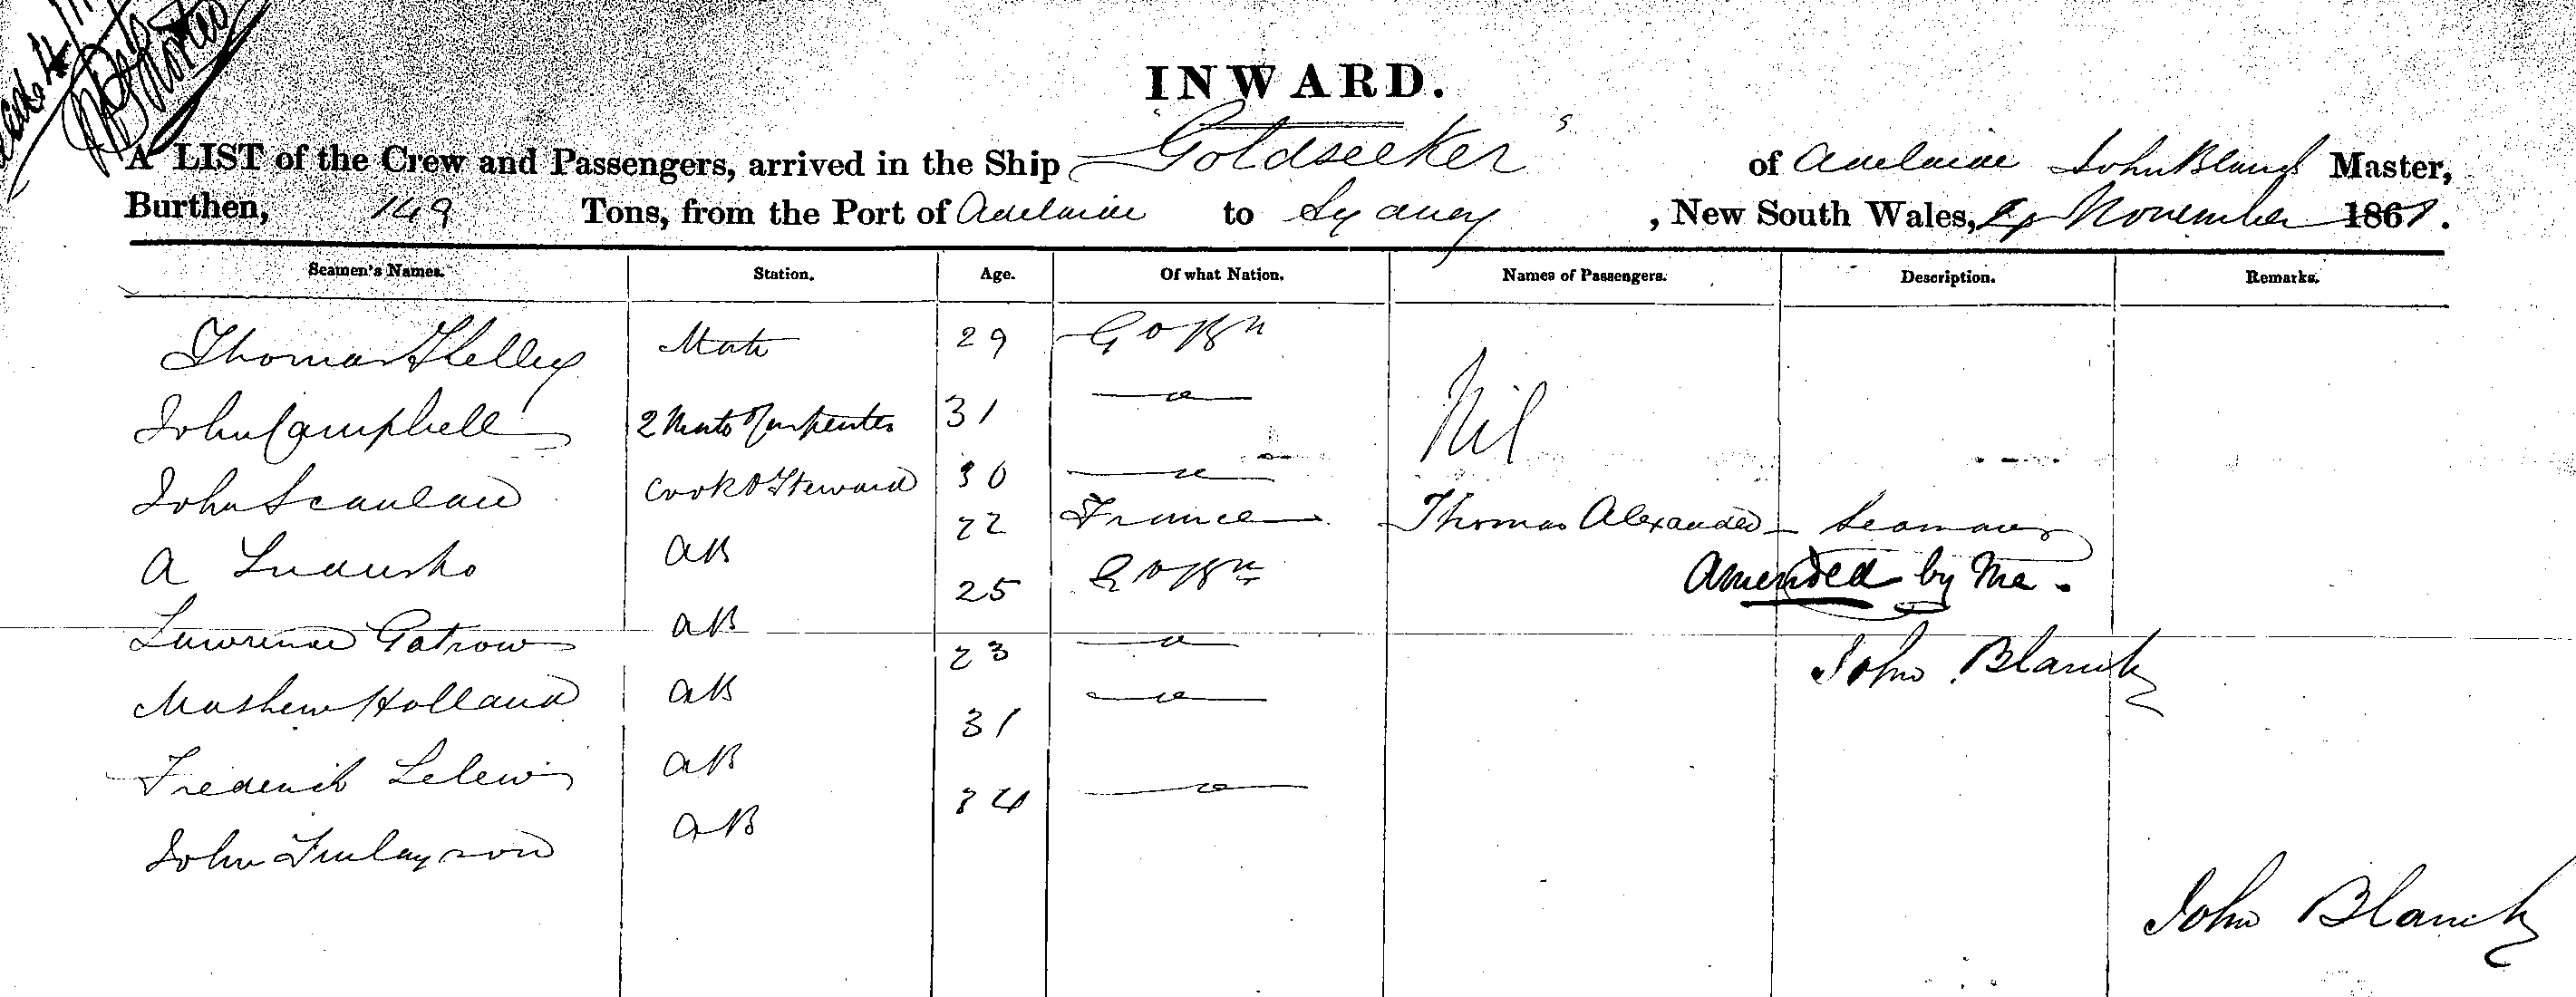 INWARD.
A LIST of the Crew and Passengers, arrived in the Ship Goldseeker of Adelaide John Blanch Master,
Burthen, 149 Tons, from the Port of Adelaide to Sydney, New South Wales, November 1861.
Seamen's Names. Station. Age. Of what Nation. Names of Passengers. Description. Remarks.
Thomas Kelley Mate 29 Go Bn
John Campbell 2 Mate & Carpenter 31 Nil
John Scanlan Cook & Steward 30
A AB 22 France Thomas Alexander - Seaman
Amended by Me.
Lawrence Gatrow AB 25 Go Bn
John Blanch
Mathew Holland AB 23
Frederick Lelew AB 31
John Finlayson AB 34
John Blanch